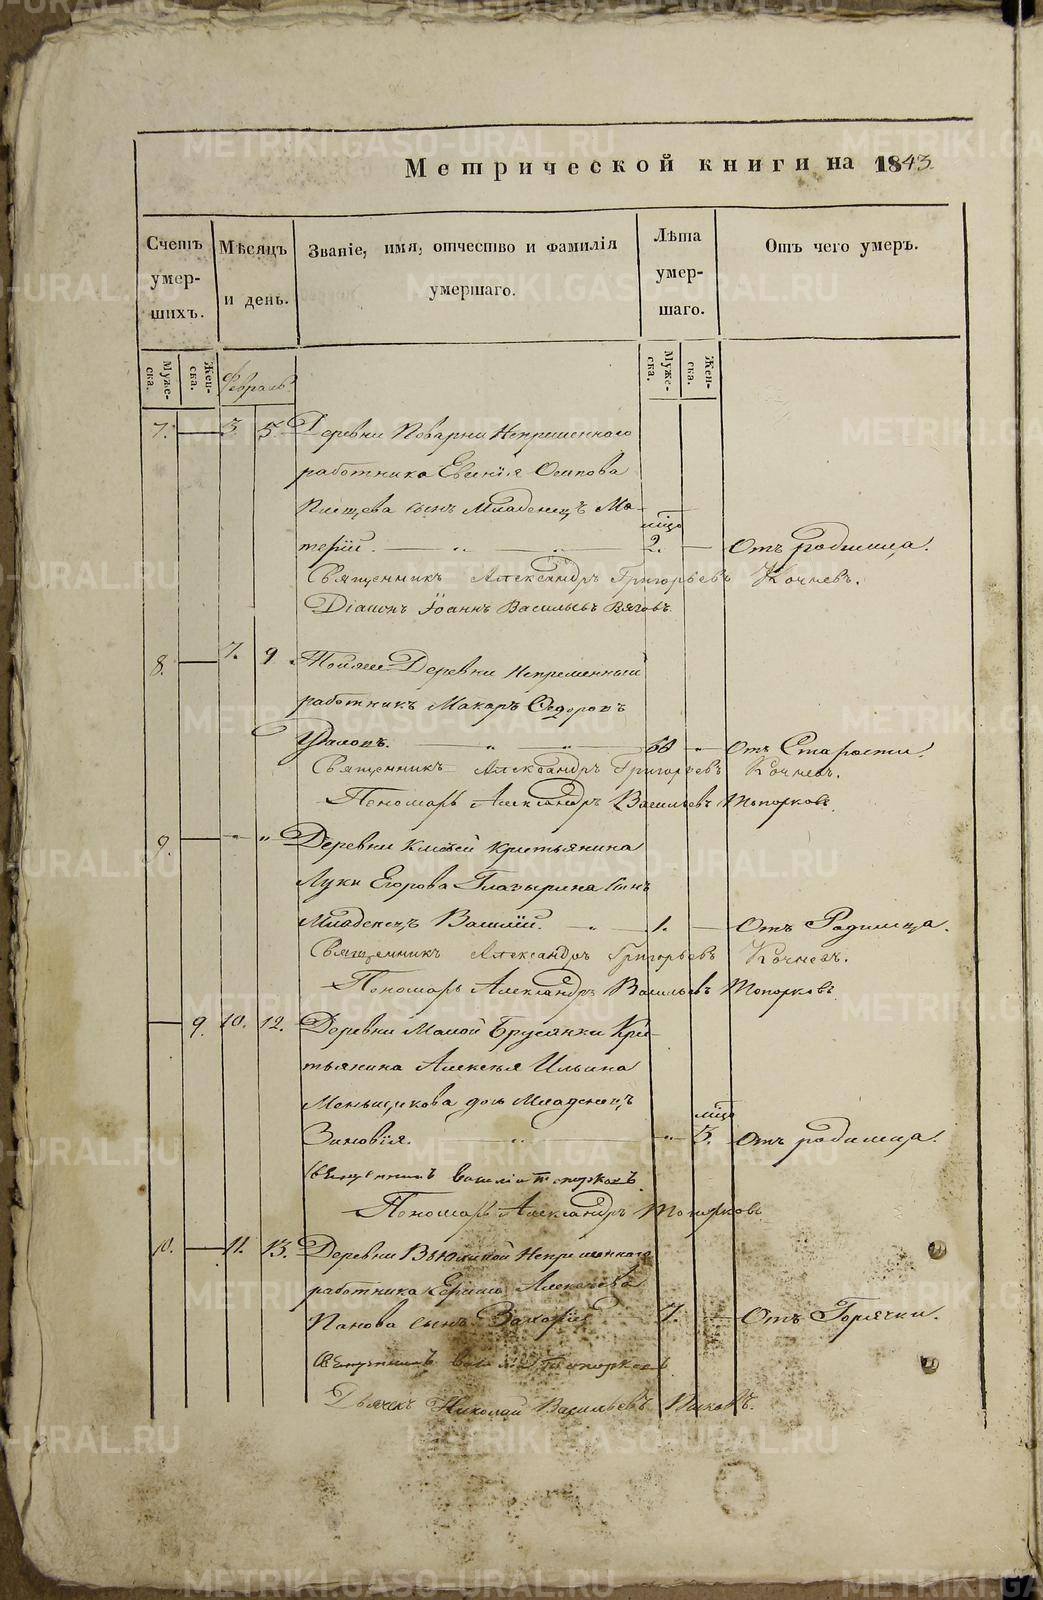 Метрической книги на 1843.
Счетъ умершихъ.
Мѣсяцъ и день.
Званіе, имя, отчество и фамилія умершаго.
Лѣта умершаго.
Отъ чего умеръ.
Мужеска. Женска. Февраль Мужеска. Женска.
7. — 3 5. Деревни Поварни Непременнаго
работника Евения Осипова
сынъ Младенецъ Ма-
мѣс
терій. — „ — „ — 2. — Отъ родимца.
Священникъ Александръ Григорьевъ Кочневъ.
Діаконъ Іоаннъ Васильевъ Вяговъ.
8. — 7. 9 Тойже Деревни Непременный
работникъ Макаръ Сидоровъ
Удаловъ. — „ — „ — 68 „ Отъ Старости.
Священникъ Александръ Григорьевъ Кочневъ.
Пономарь Александръ Васильевъ Топорковъ.
9. — „ „ Деревни Ключей Крестьянина
Луки Егорова Глазырина Сынъ
Младенецъ Василій. „ — 1. — Отъ Родимца.
Священникъ Александръ Григорьевъ Кочневъ.
Пономарь Александръ Васильевъ Топорковъ.
— 9. 10. 12. Деревни Малой Брусянки Кре-
тьянина Алексея Ильина
Меньщикова дочь Младенецъ
мѣс
Зиновія. „ „ 3. Отъ родимца.
Священникъ Василій Топорковъ
Пономарь Александръ Топорковъ
10. — 11. 13. Деревни Непременнаго
работника Алексеева
Панова сынъ Захарій 7. — Отъ Горячки.
Священникъ Василій Топорковъ
Дьячекъ Николай Васильевъ
METRIKI.GASO-URAL.RU